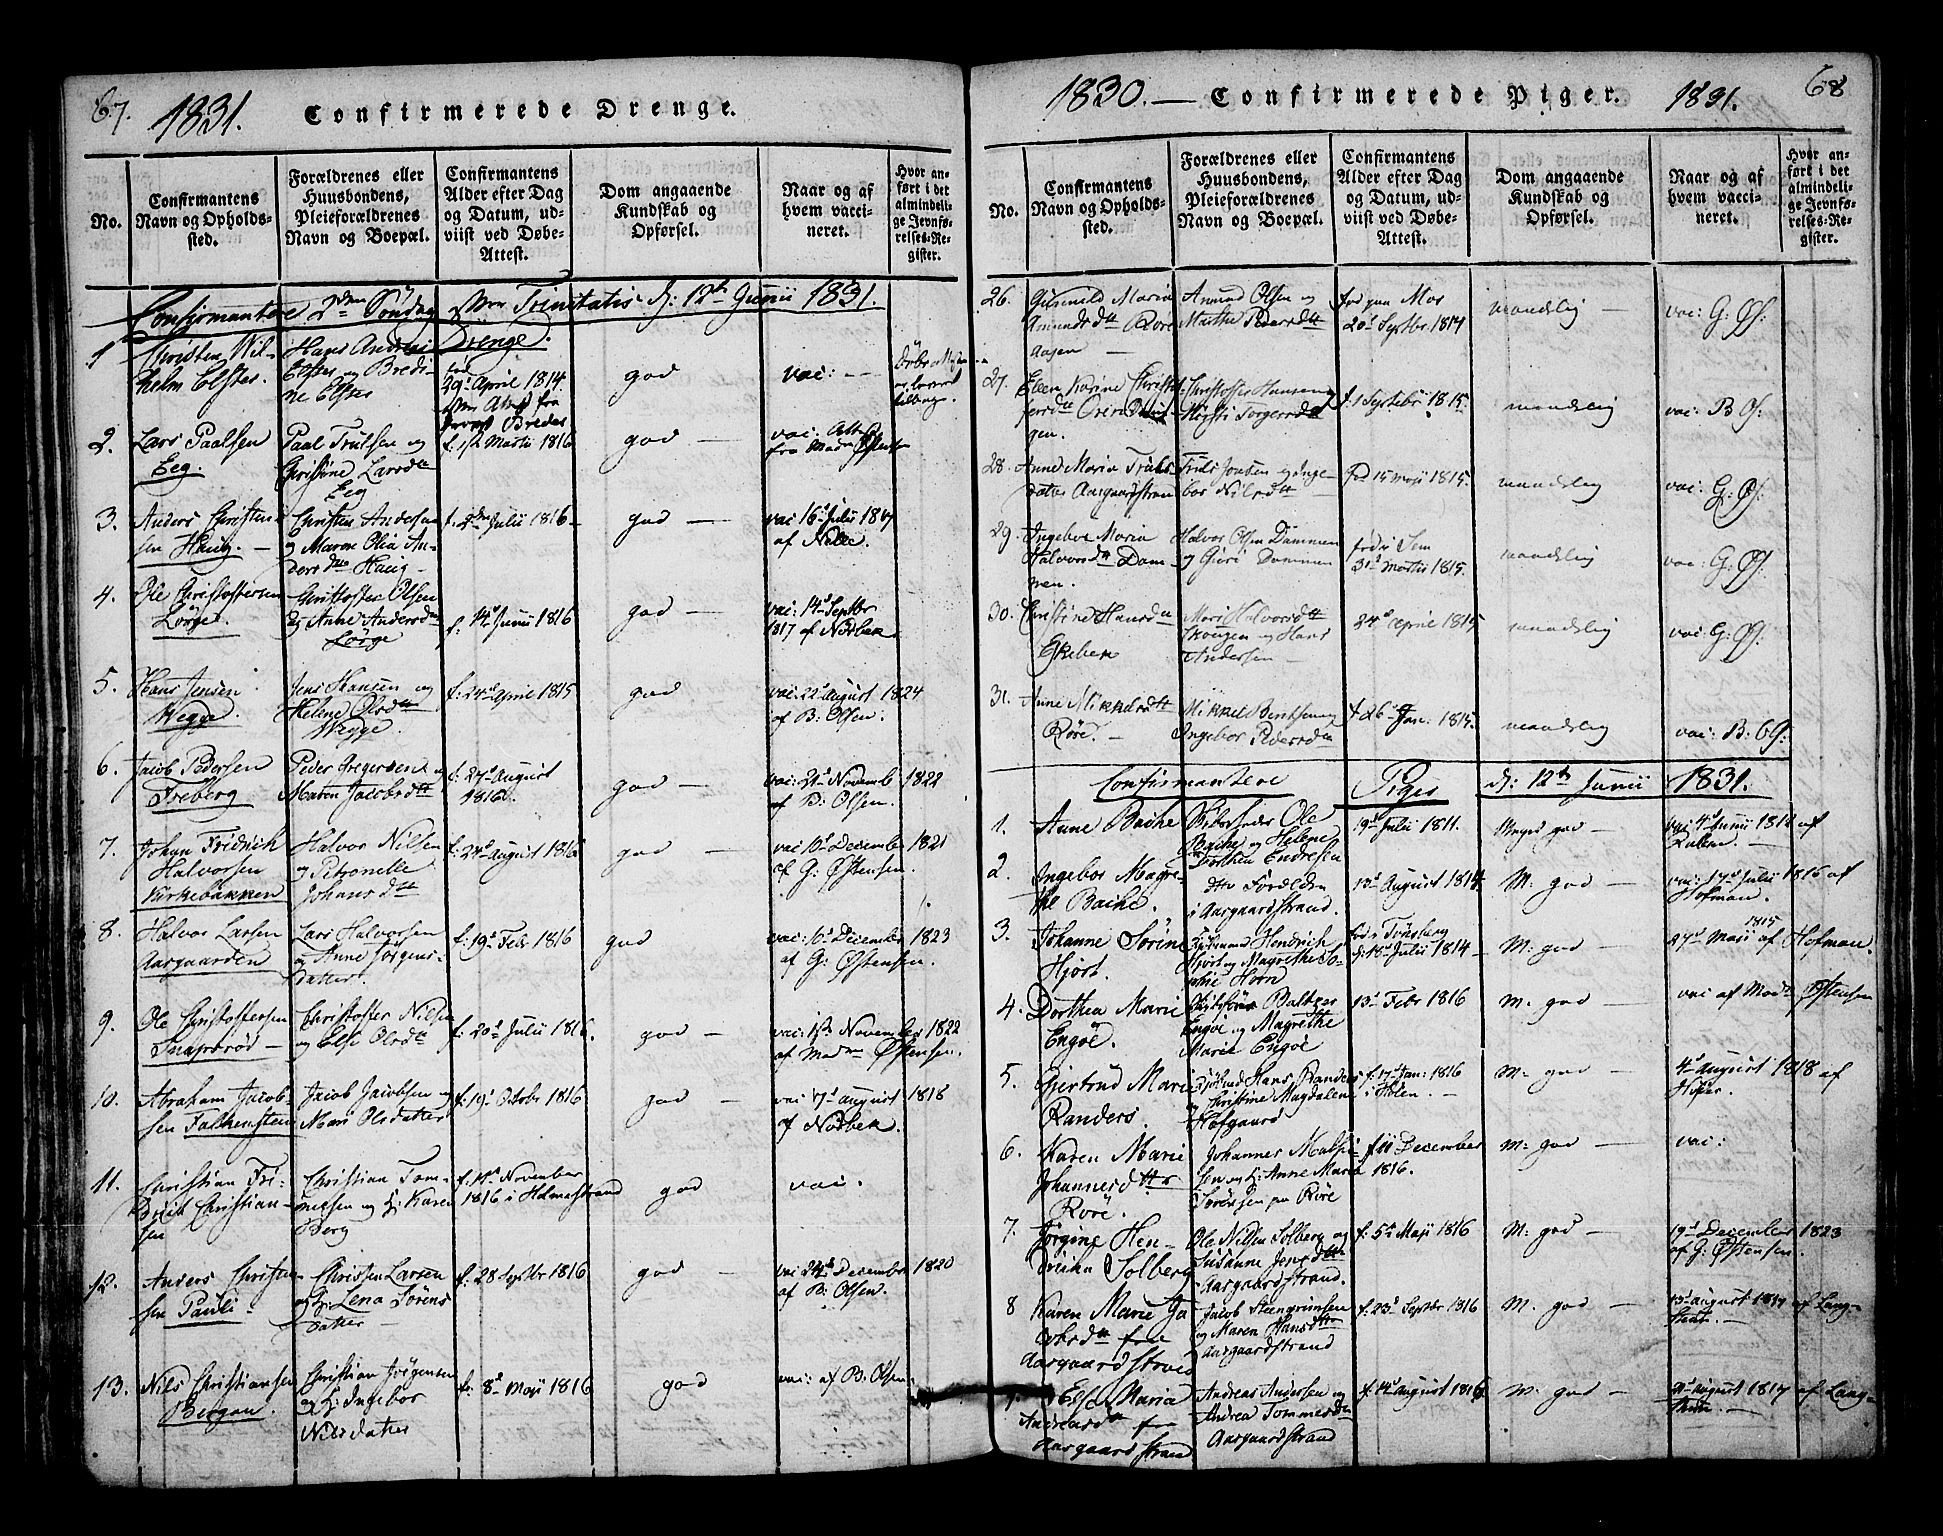 67.
1831.
Confirmerede Drenge.
No.
Confirmantens Navn og Opholdssted.
Forældrenes eller Huusbondens, Pleieforældrenes Navn og Boepæl.
Confirmantens Alder efter Dag og Datum, udviist ved Døbe-Attest.
Dom angaaende Kundskab og Opførsel.
Naar og af hvem vaccineret.
Hvor anført i det almindelige Jevnførelses-Register.
Confirmantere 2den Söndag Trinitatis d: 12te Junii 1831.
Drenge.
1 Christen Wilhelm Elster.
Hans Andreas Elster og Bredine Elster
fød 29d April 1814.
god
vac:
2. Lars Paalsen Eeg.
Paal Trulsen og Christine Larsdtt Eeg
f: 1ste Martii 1816
god
vac: Attest fra Madm Østensen
3. Anders Christensen Haug.
Christen Andersen og Maren Olia Andersdtt Haug
f: 2den Julii 1816
god
vac 16d Julii 1817 af
4. Ole Christoffersen Lørge.
Christoffer Olsen og Anne Andersdtt Lørge
f: 14d Junii 1816
god
vac: 14d Septbr 1817 af Norbek
5. Hans Jensen Wegge.
Jens Hansen og Helene Olsdtt Wegge.
f: 24d April 1815
god
vac: 22d August 1824 af B: Olsen.
6. Jacob Pedersen Freberg
Peder Gregersen og Maren Jacobsdtt
f: 27d August 1816.
god
vac: 21d Novemb 1822 af B: Olsen.
7. Johan Fridrich Halvorsen Kirkebakken
Halvor Nilsen og Petronelle Johansdtt
f: 24d August 1816
god
vac 10d December 1821 af G: Østensen.
8. Halvor Larsen Aasgaarden
Lars Halvorsen og Anne Jørgensdatter.
f: 19d Febr 1816
god
vac: 10d December 1823 af G: Østensen.
9. Ole Christoffersen Snapsrød
Christoffer Nilsen og Else Olsdtt
f: 20d Julii 1816.
god
vac: 1ste November 1822 af Madme Østensen.
10. Abraham Jacobsen Falkensten
Jacob Jacobsen og Mari Olsdatter
f: 19d Octobr 1816
god
vac 7d August 1818 af Norbek.
11. Christian Fridrich Christiansen
Christian Tommesen og Karen Berg
f: November 1816 i Holmestrand
god
vac:
12. Anders Christensen Pauli
Christen Larsen og Lena Sörensdatter
f: 28 Septbr 1816
god
vac 24d December 1820 af B: Olsen.
13. Nils Christiansen Bergan.
Christian Jørgensen og Ingebor Nilsdatter
f: 8d Maji 1816
god
vac: af B. Olsen
1830. — Confirmerede Piger. 1831.
68
No.
Confirmantens Navn og Opholdssted.
Forældrenes eller Huusbondens, Pleieforældrenes Navn og Boepæl.
Confirmantens Alder efter Dag og Datum, udviist ved Døbe-Attest.
Dom angaaende Kundskab og Opførsel.
Naar og af hvem vaccineret.
Hvor anført i det almindelige Jevnførelses-Register.
26. Gunnild Maria Amundsdtt Røreaasen
Amund Olsen og Marthe Pedersdtt
fød paa Mos 20d Septbr 1814
maadelig
vac: G: Øs:
27. Ellen Karine Christoffersdtt
Christoffer Hansen
f. 1 Septebr 1815.
maadelig
vac: B Os:
28. Anne Maria Trulsdatter Aasgaardstran
Truls Jonsen og Ingebor Nilsdtt
fød 15 maji 1815.
maadelig
vac: G: Øs:
29. Ingebor Maria Halvorsdtt Dammen.
Halvor Olsen Dammen og Guri Dammen
fød i Sem 31d Martii 1815.
maadelig
vac: G: Øs:
30. Christine Hansdtt Ekebek
Mari Halvorsdtt Skougen og Hans Andersen
24d April 1815
maadelig
vac: G: Øs:
31. Anne Mikkelsdtt Røre.
Mikkel Bentsen og Ingebor Pedersdtt
f 26d Jan: 1815.
maadelig
vac: B: Os:
Confirmantere Piger d: 12te Junii 1831.
1. Anne Bache
Ole Bache og Helene Dorthea Endresen
19d Julii 1811.
Meget god
vac: 4d Junii 1812 af
2. Ingebor Magrethe Bache.
dtto Forældre i Aasgaardstrand.
13d August 1814
M: god
vac: 17d Julii 1816 af Hofman.
3. Johanne Sørine Hjort.
Hendrich Hjort og Magrethe Sophie Horn
fød i Tønsberg d: 18d Julii 1814
M: god
27d Maji 1815 af Hofman.
4. Dorthea Marie Engøe.
Baltzer Engøe og Magrethe Marie Engøe
13d Febr 1816
m: god
vac af Madm Østensen
5. Gjertrud Marie Randers.
Hans Randers og Christine Magdalene Hofgaard
f. 17d Jan: 1816 i Holen.
m: god
4d August 1818 af
6. Karen Marie Johannesdtter Røre.
Johannes Mathisen og Anne Maria Sørensen paa Røre
f 11 December 1816.
m: god
vac:
7. Jørgine Hendricha Solberg
Ole Nilsen Solberg og Susanne Jensdtt Aasgaardstrand.
f: 5te Maji 1816
M: god
19d December 1823 af G: Østensen.
8 Karen Marie Jacobsdtt fra Aasgaardstrand
Jacob Steengrimsen og Maren Hansdtt Aasgaardstrand
f: 23d Septbr 1816
M: god
13d August 1817 af Lang-
Else Maria Andreasdtt fra Aasgaardstrand
Andreas Andersen og Andrea Tommesdtt Aasgaardstrand
f 14d August 1816
M: god
August 1817 af Lang-